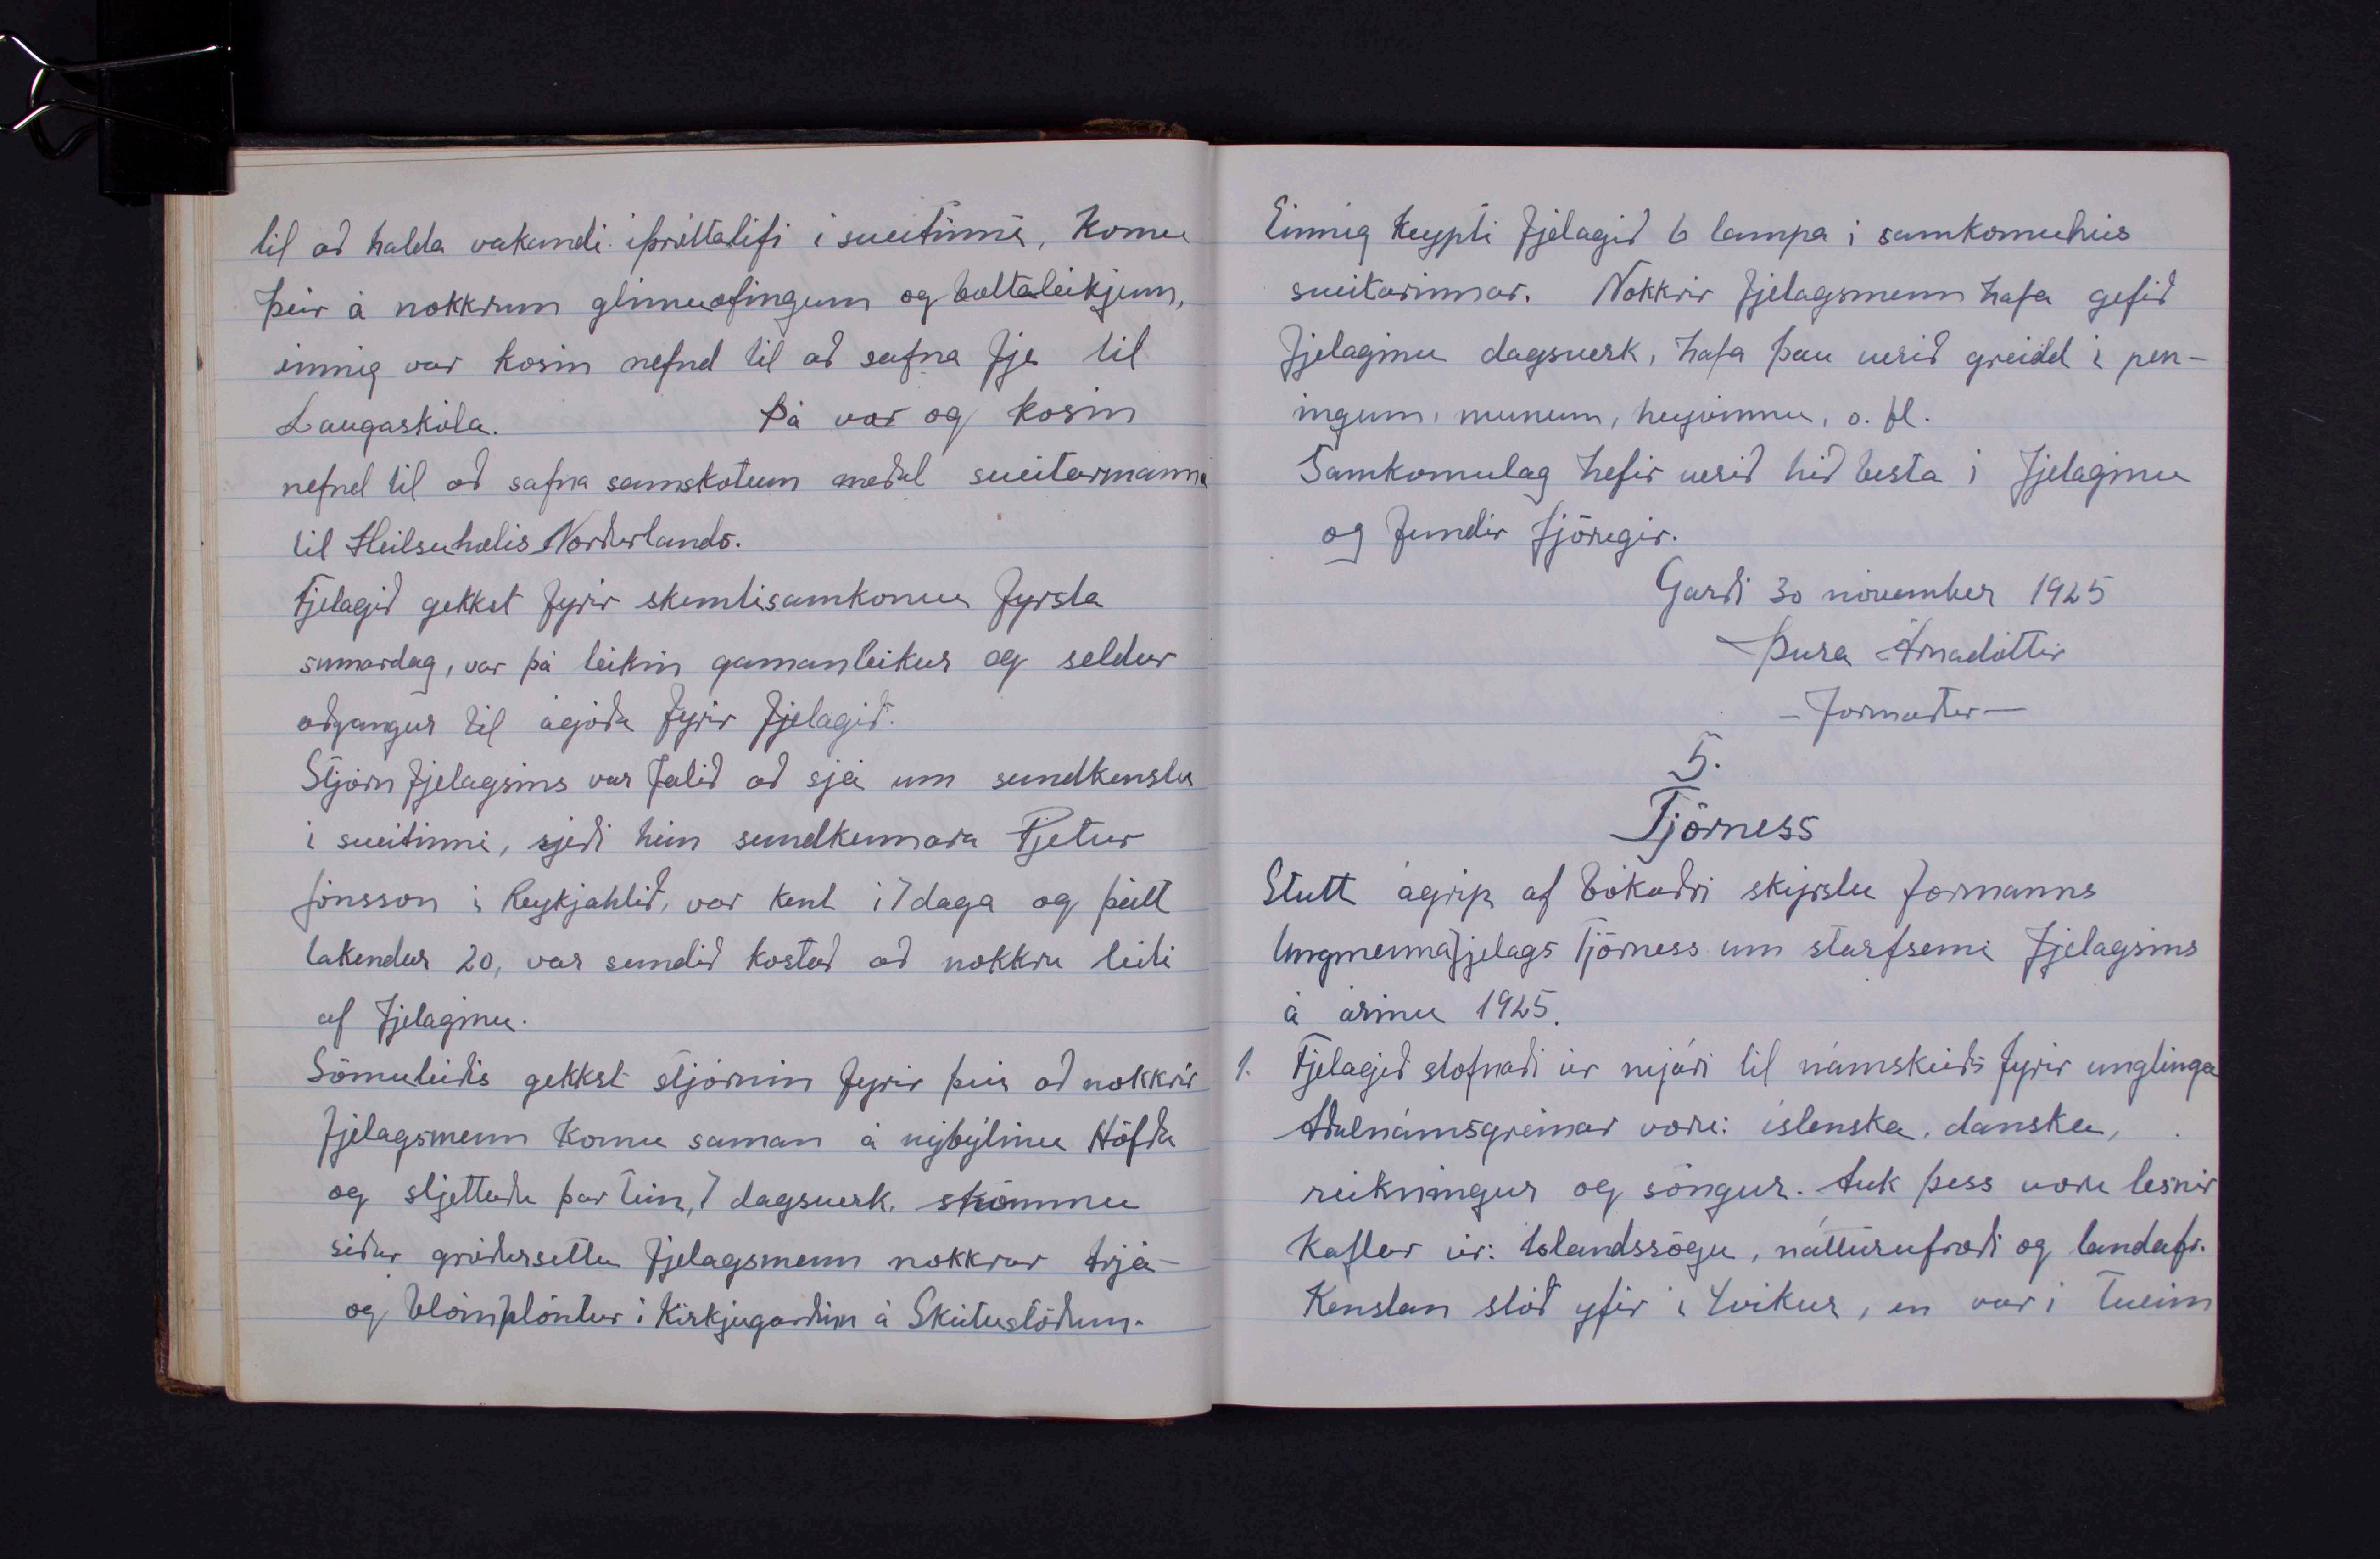 til að halda vakandi íþróttalífi í sveitinni, Komu
þeir á nokkrum glímuæfingum og boltaleikjum,
einnig var kosin nefnd til að safna fje til
Laugaskóla. Þá var og kosin
nefnd til að safna samskotum meðal sveitarmanna
til Heilsuhælis Norðurlands.
Fjelagið gekkst fyrir skemtisamkomu fyrsta
sumardag, var þá leikin gamanleikur og seldur
aðgangur til ágóða fyrir fjelagið.
Stjórn fjelagsins var falið að sjá um sundkenslu
í sveitinni, rjeði hún sundkennara Pjetur
Jónsson í Reykjahlið, var kent í 7 daga og þátt
takendur 20, var sundið kostað að nokkru leiti
af fjelaginu.
Sömuleiðis gekkst stjórnin fyrir því að nokkrir
fjelagsmenn komu saman á nýbýlinu Höfða
og sljettuðu þar tún, 7 dagsverk. skömmu
síðar gróðursettu fjelagsmenn nokkrar trjá-
og blómplöntur í kirkjugarðinn á Skútustöðum.
Einnig keypti fjelagið 6 lampa í samkomuhús
sveitarinnar. Nokkrir fjelagsmenn hafa gefið
fjelaginu dagsverk, hafa þau verið greidd í pen-
ingum, munum, heyvinnu, o. fl.
Samkomulag hefir verið hið besta í fjelaginu
og fundir fjörugir.
Garði 30 nóvember 1925
Þura Árnadóttir
- Formaður -
5.
Tjörness
Stutt ágrip af bókaðri skýrslu formanns
Ungmennafjelags Tjörness um starfsemi fjelagsins
á árinu 1925.
1. Fjelagið stofnaði úr nýári til námskeiðs fyrir unglinga
Aðalnámsgreinar voru: íslenska, danska,
reikningur og söngur. Auk þess voru lesnir
Kaflar úr: Íslandssögu, náttúrufræði og landafr.
Kenslan stóð yfir í 4 vikur, en var í tveim